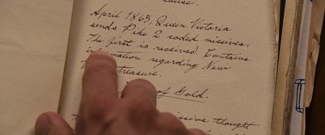 cause.
April 1863, Queen Victoria
sends Pike 2 coded missives.
The first is received. Contains
information regarding New
treasure.
of Gold.
missive thought